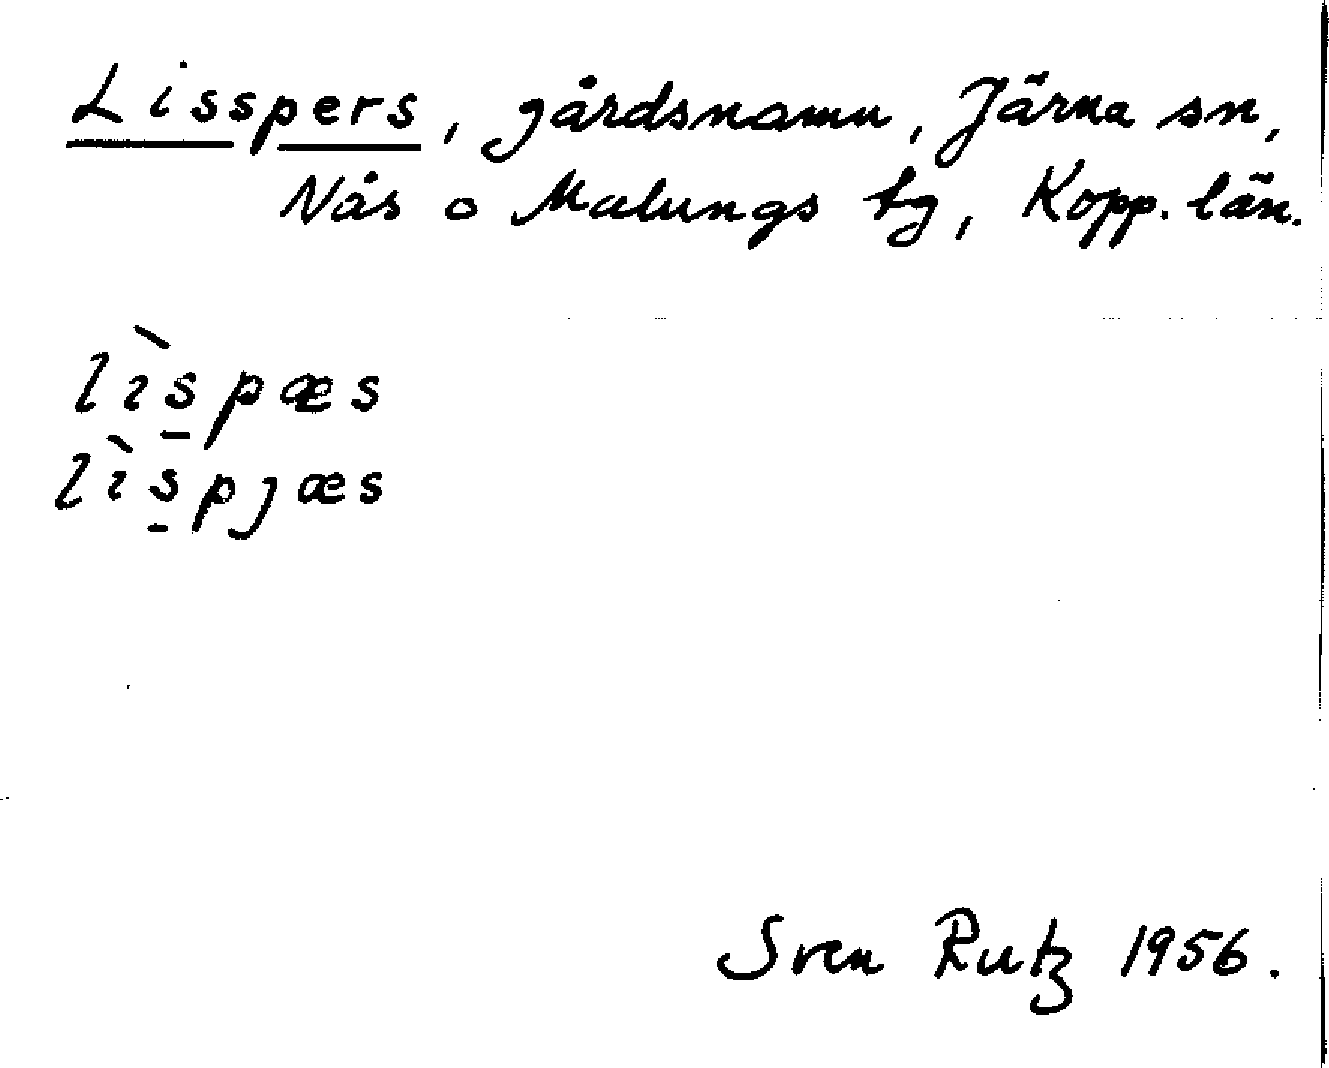 Lisspers, gårdsnamn, Järna sn,
Nås o Malungs tg, Kopp. län.
lìs̱pæs
lìs̱pjæs
Sven Rutz 1956.